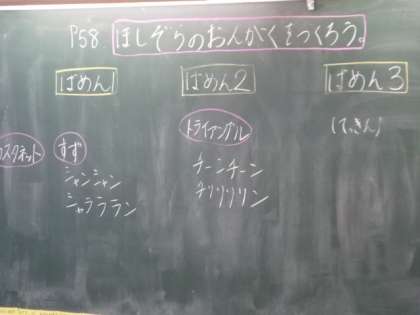 P58 ほしぞらのおんがくをつくろう。
ばめん1
ばめん2
ばめん3
カスタネット
すず
トライアングル
(てっきん)
シャンシャン
シャラララン
チーンチーン
チリリリリン